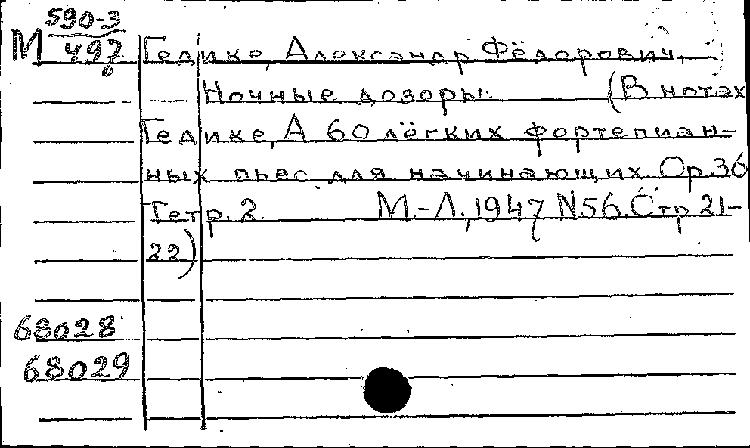 590-3
М 497 Гедике, Александр Фёдорович.
Ночные дозоры. (В нотах
Гедике, А 60 лёгких фортепиан-
ных пьес для начинающих. Ор. 36
Тетр. 2. М.-Л., 1947 N56. Стр. 21-
22)
68028
68029